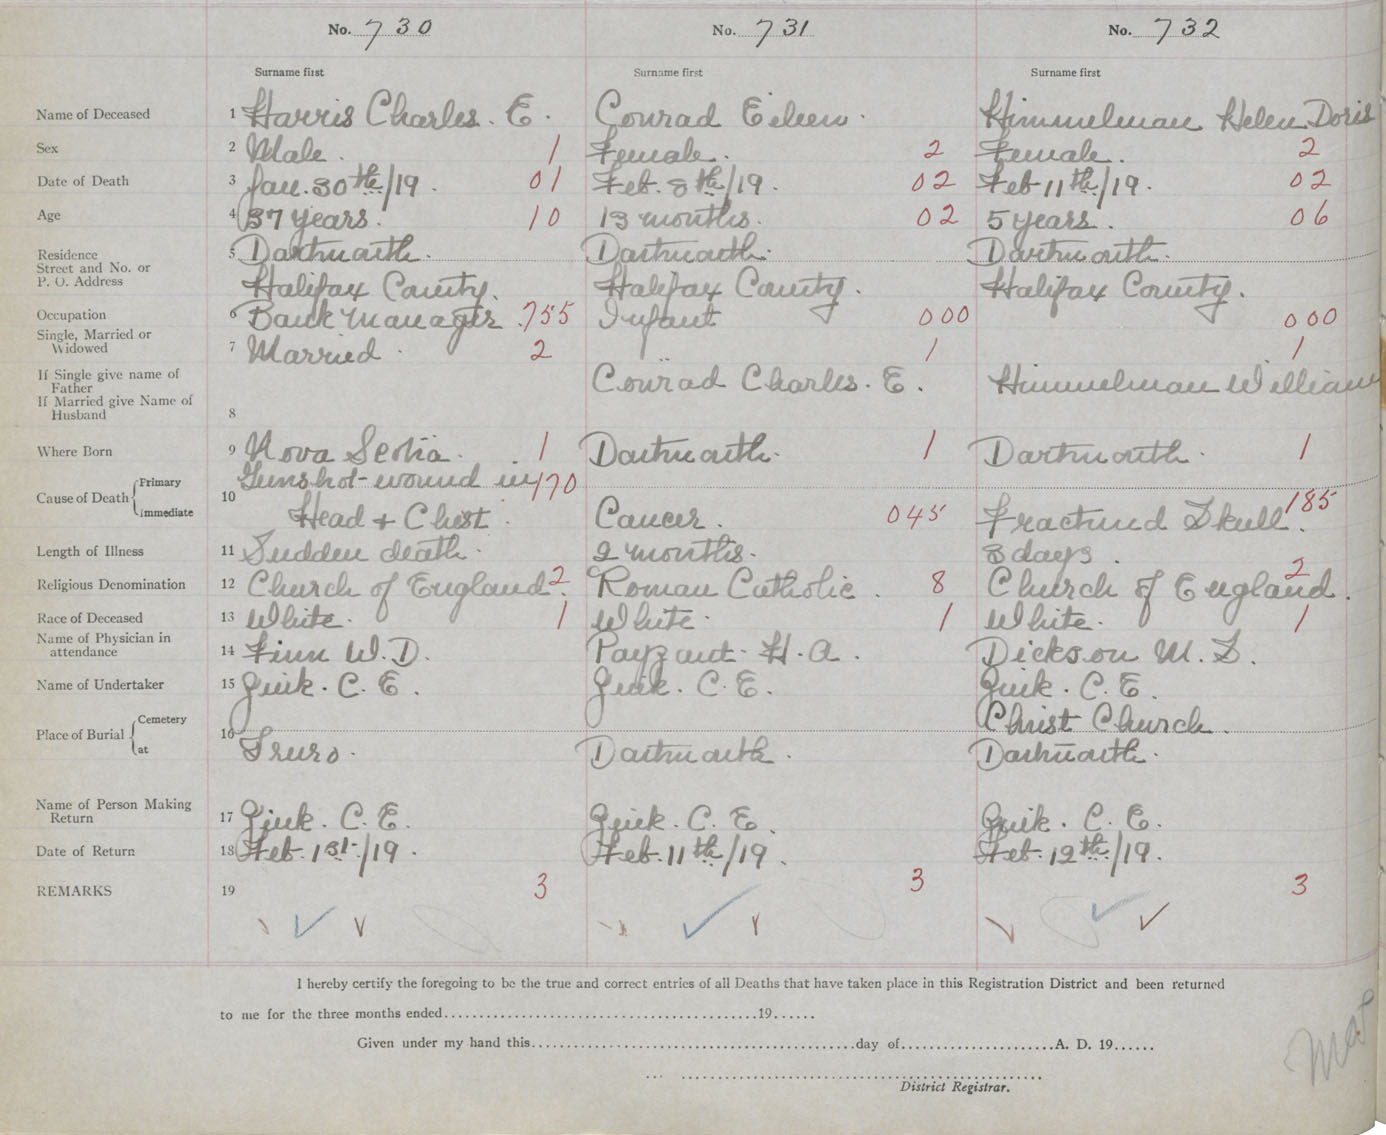 No. 730 No. 731 No. 732
Surname first Surname first Surname first
Name of Deceased 1 Harris Charles. E. Conrad Eileen. Himmelman Helen Doris
Sex 2 Male. 1 Female. 2 Female. 2
Date of Death 3 Jan. 30th/19. 01 Feb. 8th/19. 02 Feb 11th/19. 02
Age 4 37 years. 10 13 months. 02 5 years. 06
Residence 5 Dartmouth. Dartmouth. Dartmouth.
Street and No. or
P. O. Address Halifax County. Halifax County. Halifax County.
Occupation 6 Bank Manager. 755 Infant 000 000
Single, Married or
Widowed 7 Married. 2 1 1
If Single give name of
Father Conrad Charles. E. Himmelman William
If Married give Name of
Husband 8
Where Born 9 Nova Scotia. 1 Dartmouth. 1 Dartmouth. 1
Cause of Death Primary Gunshot-wound in 170
10
Immediate Head + Chest. Cancer. 045 Fractured Skull. 185
Length of Illness 11 Sudden death. 2 months. 3 days.
Religious Denomination 12 Church of England. 2 Roman Catholic. 8 Church of England. 2
Race of Deceased 13 White. 1 White. 1 White. 1
Name of Physician in
attendance 14 Finn W. D. Payzant. H. A. Dickson M. S.
Name of Undertaker 15 Zink. C. E. Zink. C. E. Zink. C. E.
Place of Burial Cemetery Christ Church.
16
at Truro. Dartmouth. Dartmouth.
Name of Person Making
Return 17 Zink. C. E. Zink. C. E. Zink. C. E.
Date of Return 18 Feb. 1st/19. Feb. 11th/19. Feb. 12th/19.
REMARKS 19 3 3 3
I hereby certify the foregoing to be the true and correct entries of all Deaths that have taken place in this Registration District and been returned
to me for the three months ended 19
Given under my hand this day of A. D. 19
District Registrar.